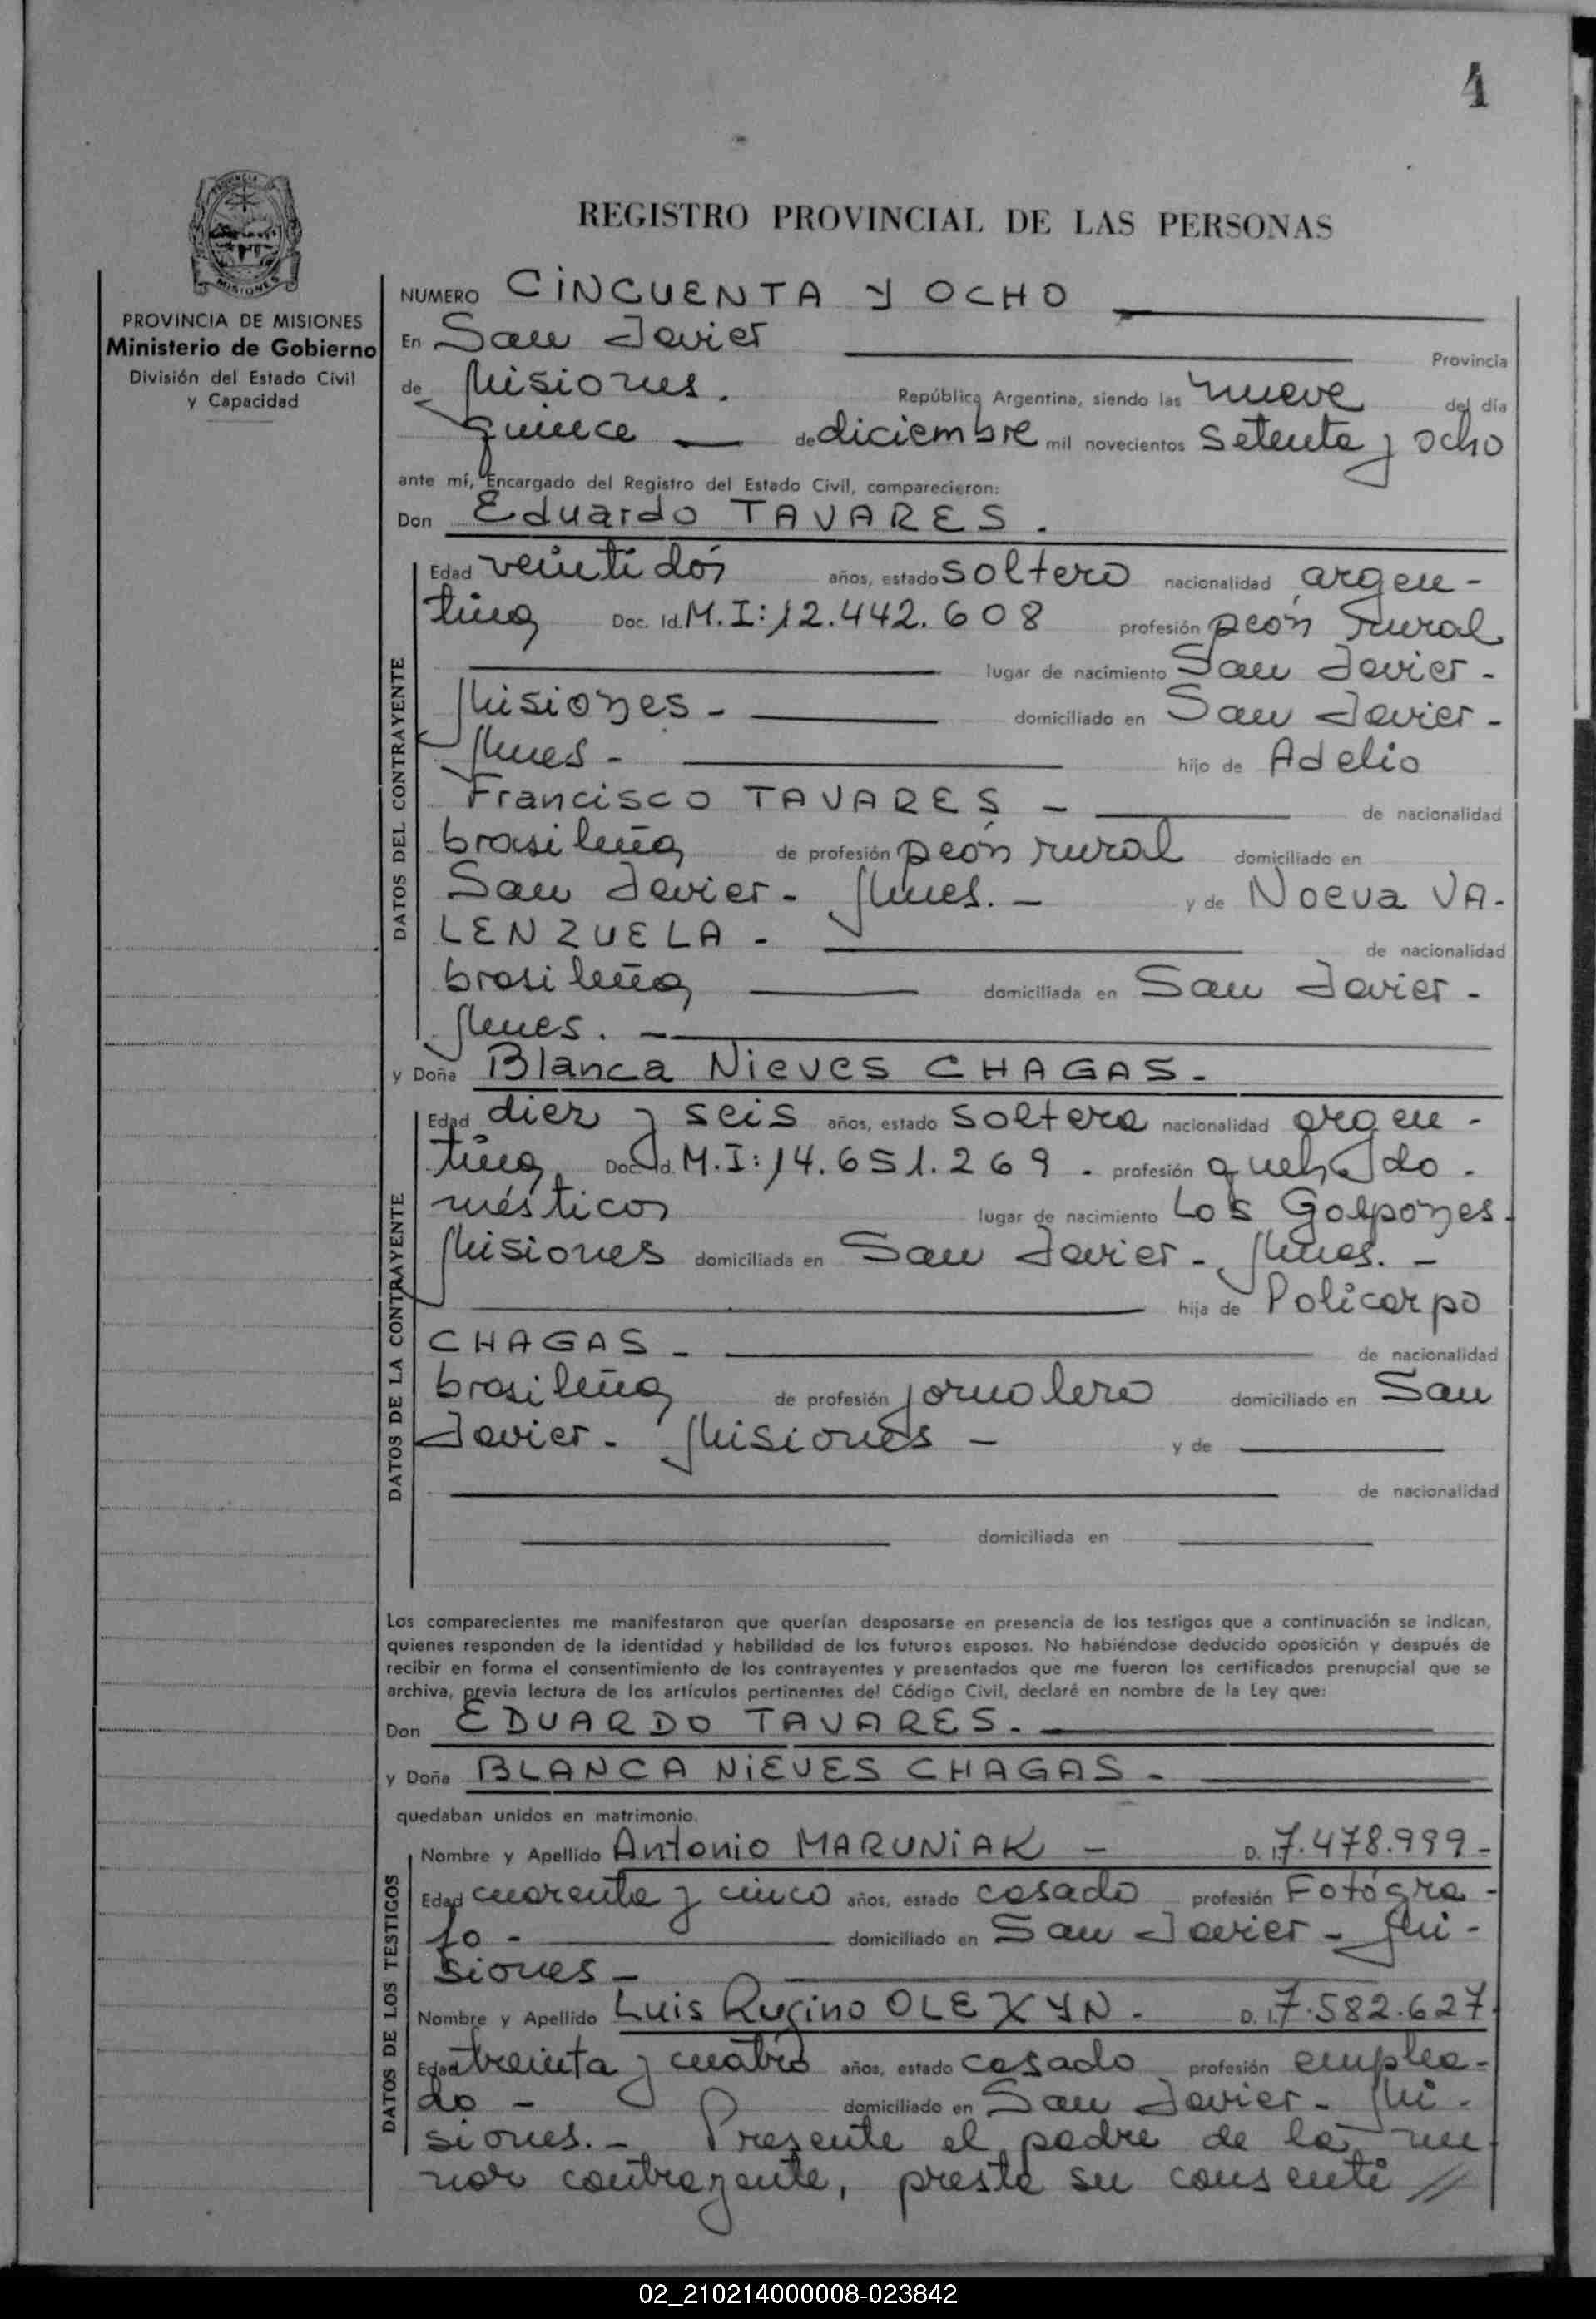 4
REGISTRO PROVINCIAL DE LAS PERSONAS
PROVINCIA DE MISIONES
Ministerio de Gobierno
División del Estado Civil
y Capacidad
NUMERO CINCUENTA Y OCHO
En San Javier Provincia
de Misiones. República Argentina, siendo las nueve del día
quince de diciembre mil novecientos setenta y ocho
ante mí, Encargado del Registro del Estado Civil, comparecieron:
Don Eduardo TAVARES.
DATOS DEL CONTRAYENTE
Edad veintidós años, estado soltero nacionalidad argen-
tina Doc. Id. M.I: 12.442.608 profesión peón rural
lugar de nacimiento San Javier-
Misiones- domiciliado en San Javier-
Mnes- hijo de Adelio
Francisco TAVARES - de nacionalidad
brasileña de profesión peón rural domiciliado en
San Javier- Mnes.- y de Noeva VA-
LENZUELA- de nacionalidad
brasileña domiciliada en San Javier-
Mnes.-
y Doña Blanca Nieves CHAGAS-
DATOS DE LA CONTRAYENTE
Edad diez y seis años, estado soltera nacionalidad argen-
tina, Doc. Id. M.I: 14.651.269. profesión queh. do-
mésticos lugar de nacimiento Los Galpones-
Misiones domiciliada en San Javier- Mnes.-
hija de Policarpo
CHAGAS- de nacionalidad
brasileña de profesión jornalero domiciliado en San
Javier- Misiones- y de
de nacionalidad
domiciliada en
Los comparecientes me manifestaron que querían desposarse en presencia de los testigos que a continuación se indican,
quienes responden de la identidad y habilidad de los futuros esposos. No habiéndose deducido oposición y después de
recibir en forma el consentimiento de los contrayentes y presentados que me fueron los certificados prenupcial que se
archiva, previa lectura de los artículos pertinentes del Código Civil, declaré en nombre de la Ley que:
Don EDUARDO TAVARES.-
y Doña BLANCA NIEVES CHAGAS-
quedaban unidos en matrimonio.
DATOS DE LOS TESTIGOS
Nombre y Apellido Antonio MARUNIAK- D. I. 7.478.999-
Edad cuarenta y cinco años, estado casado profesión Fotógra-
fo- domiciliado en San Javier- Mi-
siones-
Nombre y Apellido Luis Rufino OLEXYN- D. I. 7.582.627.
Edad treinta y cuatro años, estado casado profesión emplea-
do- domiciliado en San Javier- Mi-
siones.- Presente el padre de la me
nor contrayente, presta su consenti //
02_210214000008-023842